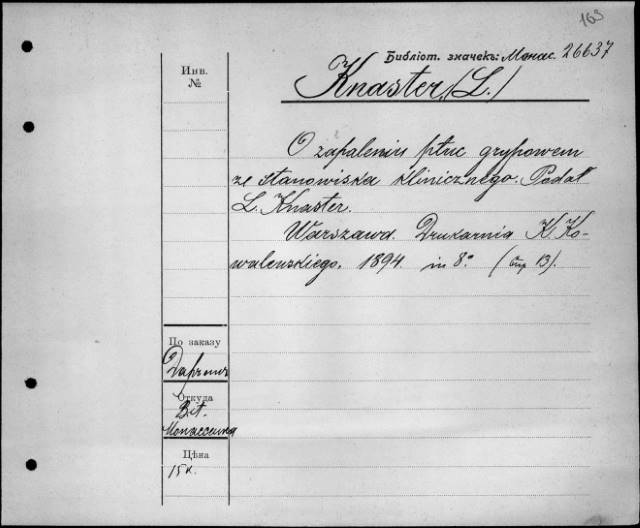 163
Библіот. значекъ: Монас. 26637
Инв.
№
Knaster, (L.)
O zapaleniu płuc grypowem
ze stanowiska klinicznego. Podał
L. Knaster.
Warszawa. Drukarnia K. Ko-
walewskiego. 1894. in 8°. (стр 13).
По заказу
Откуда
Bit.
Цѣна
15 к.